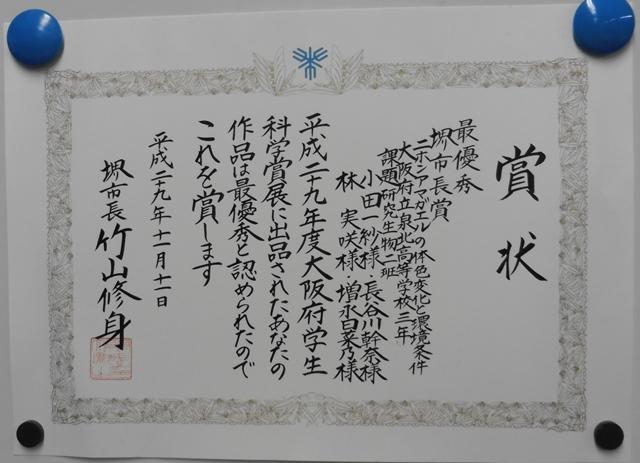 賞状
最優秀
堺市長賞
ニホンアマガエルの体色変化と環境条件
大阪府立泉北高等学校三年
課題研究生物二班
小田一紗様・長谷川幹奈様
林 実咲様・増永日菜乃様
平成二十九年度大阪府学生
科学賞展に出品されたあなたの
作品は最優秀と認められたので
これを賞します
平成二十九年十一月十一日
堺市長 竹山修身